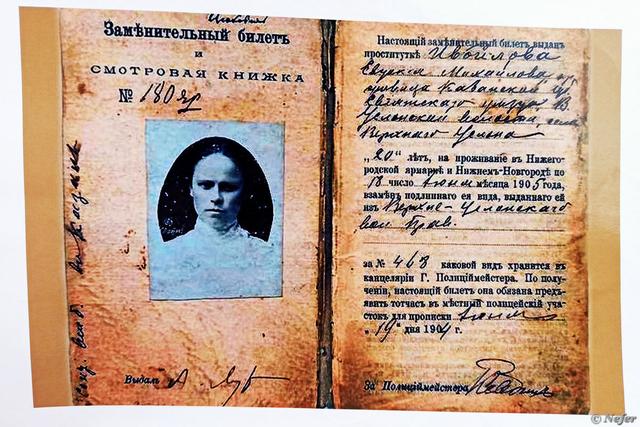 Замѣнительный билетъ
и
СМОТРОВАЯ КНИЖКА
№ 180 яр
Выдалъ
Настоящій замѣнительный билетъ выданъ
проституткѣ Ивойлова
Евдокія Михайлова кр
Казанской губ.
Свіяжскаго уѣзда В.
Услонской волости, села
Верхняго Услона
„20" лѣтъ, на проживаніе въ Нижего-
родской ярмаркѣ и Нижнемъ-Новгородѣ по
число мѣсяца 1905 года,
взамѣнъ подлиннаго ея вида, выданнаго ей
изъ Верхне-Услонскаго
вол Прав.
за № 463 каковой видъ хранится въ
канцеляріи Г. Полиціймейстера. По полу-
ченіи, настоящій билетъ она обязана предъ-
явить тотчасъ въ мѣстный полицейскій уча-
стокъ для прописки
„19" дня 1904 г.
За Полиціймейстера
© Nefer